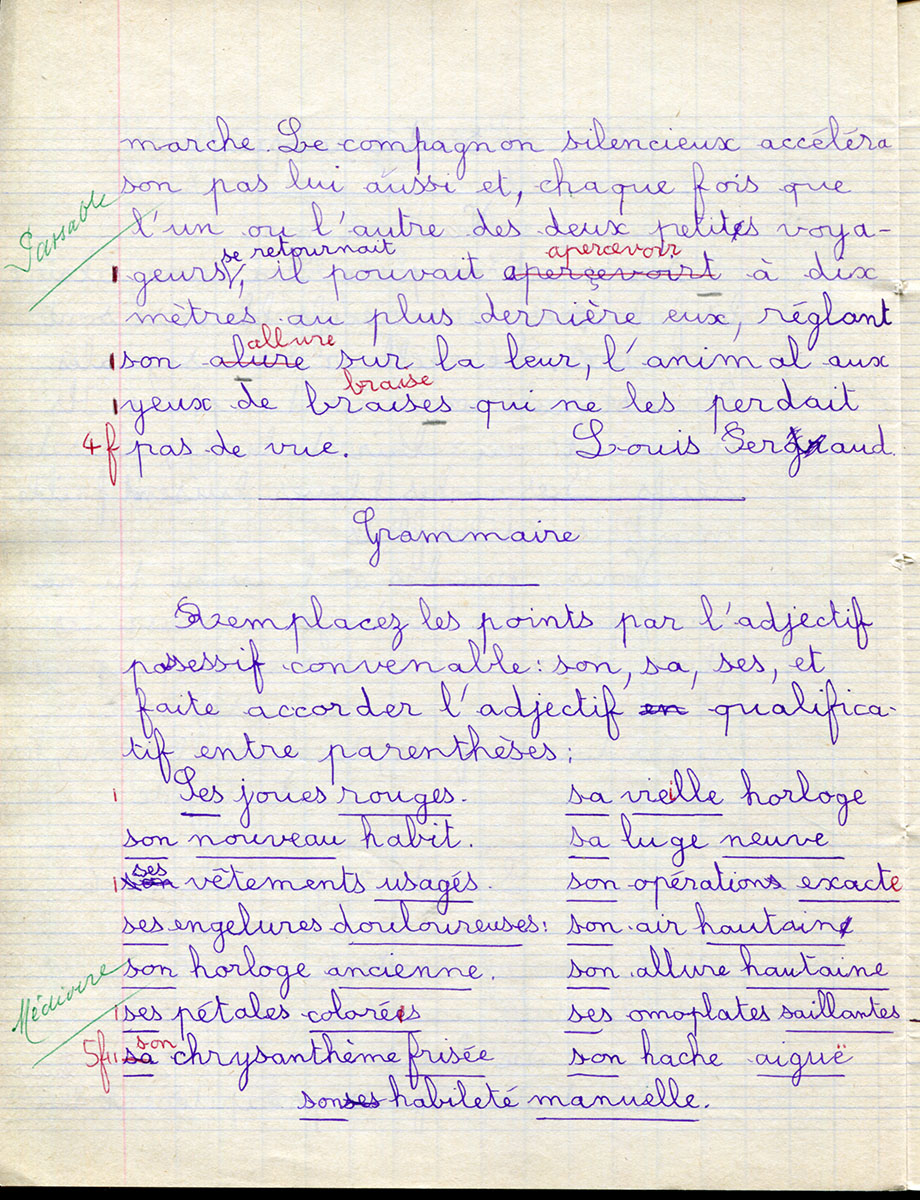 marche. Le compagnon silencieux accéléra
Passable
son pas lui aussi et, chaque fois que
l'un ou l'autre des deux petites voya-
se retournait apercevoir
geurs, il pouvait aperçevoirt à dix
mètres au plus derrière eux, réglant
allure
son alure sur la leur, l'animal aux
braise
yeux de braises qui ne les perdait
4f pas de vue. Louis
Grammaire
Remplacez les points par l'adjectif
possessif convenable: son, sa, ses, et
faite accorder l'adjectif en qualifica-
tif entre parenthèses:
Ses joues rouges. sa vieille horloge
son nouveau habit. sa luge neuve
ses
son vêtements usagés. son opérations exacte
ses engelures douloureuses: son air hautain
son horloge ancienne. son allure hautaine
Médiocre
ses pétales colorées ses omoplates saillantes
son
5f sa chrysanthème frisée son hache aiguë
son ses habileté manuelle.